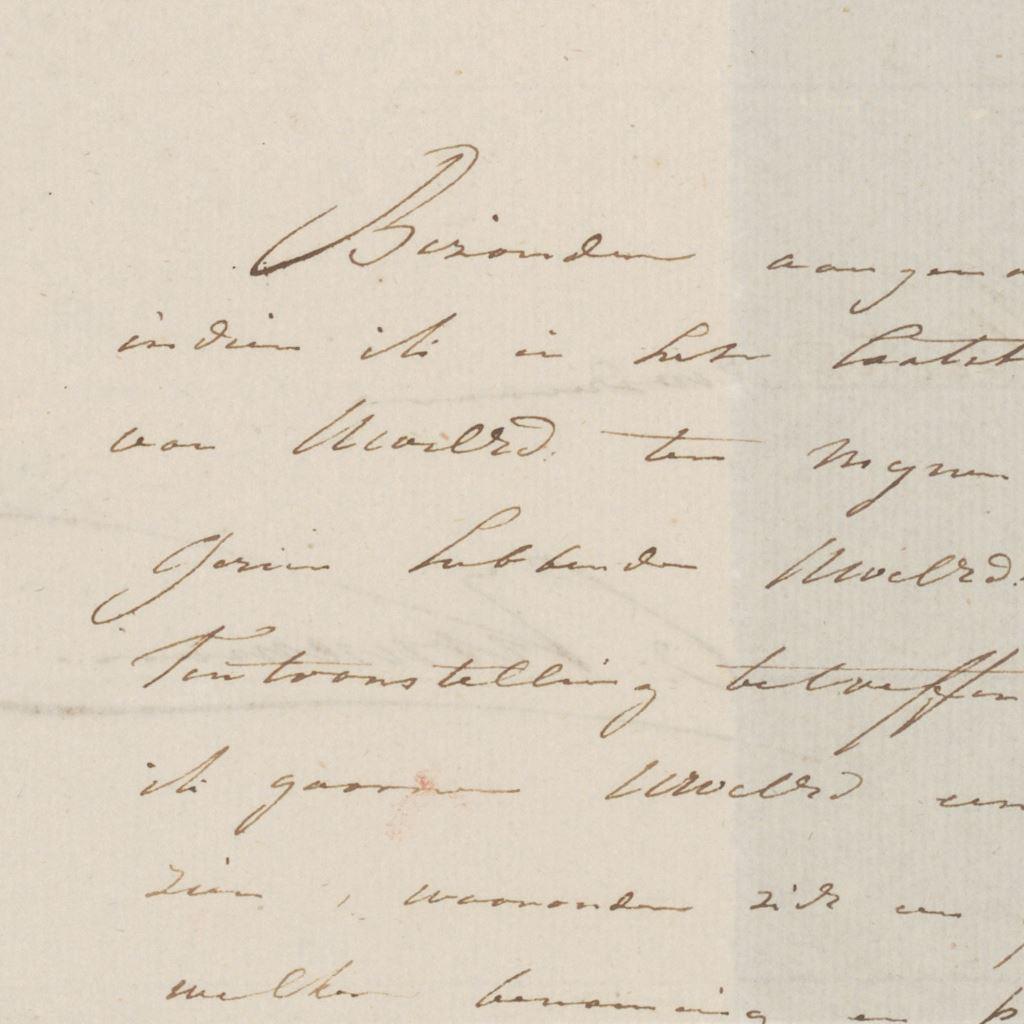 Bizonder aangena
indien ik in het laatst
van UwelEd. ten mynen
Gezien hebbende UwelEd.
Tentoonstelling betreffen
ik gaarne UwelEd een
zien, waaronder zich een
welker benaming en p